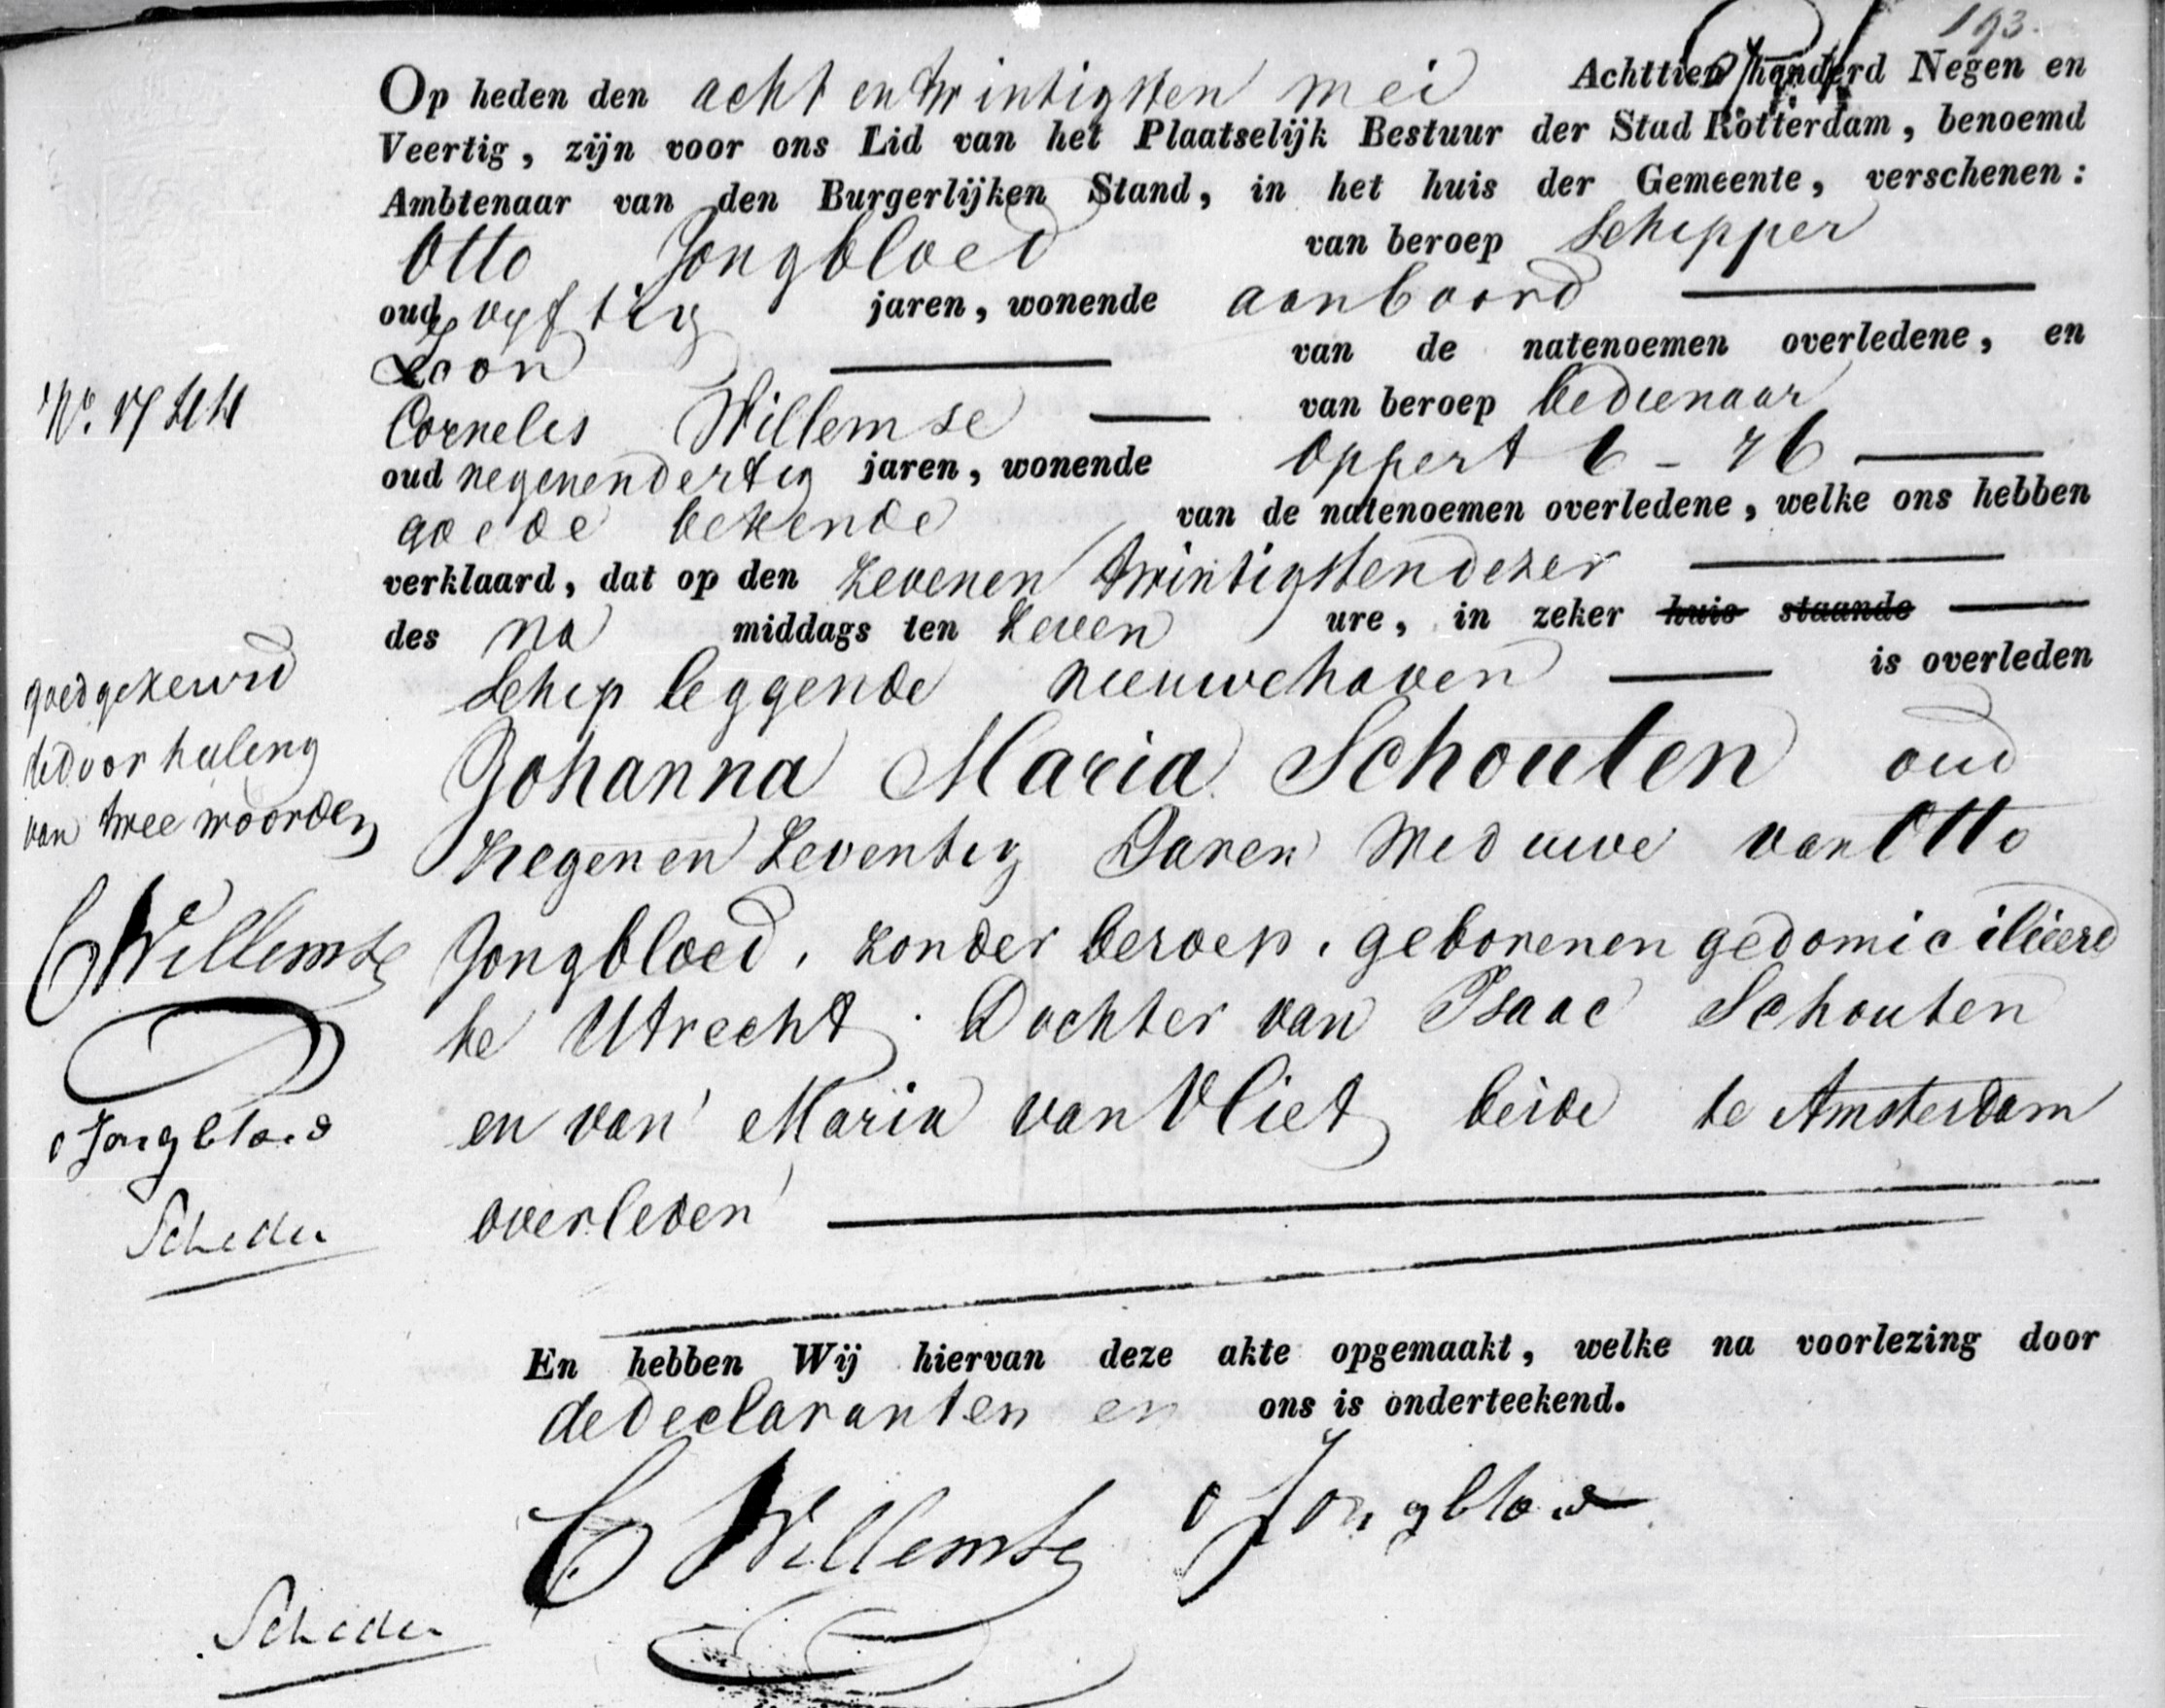 193.
Op heden den acht en twintigsten mei Achttien honderd Negen en
Veertig, zijn voor ons Lid van het Plaatselijk Bestuur der Stad Rotterdam, benoemd
Ambtenaar van den Burgerlijken Stand, in het huis der Gemeente, verschenen:
Otto Jongbloed van beroep Schipper
oud vyftig jaren, wonende aanboord
Zoon van de natenoemen overledene, en
Cornelis Willemse van beroep bedienaar
oud negenendertig jaren, wonende Oppert 6 - 76
goede bekende van de natenoemen overledene, welke ons hebben
verklaard, dat op den zevenen twintigsten dezer
des na middags ten zeven ure, in zeker huis staande
Schip leggende nieuwehaven is overleden
Johanna Maria Schouten oud
negenen zeventig Jaren Weduwe van Otto
Jongbloed, zonder beroep, geborenen gedomicilieerd
te Utrecht. Dochter van Isaac Schouten
en van Maria van Vliet beide te Amsterdam
overleden
En hebben Wij hiervan deze akte opgemaakt, welke na voorlezing door
de declaranten en ons is onderteekend.
C Willemse
O Jongbloed
No.
goedgekeurd
de doorhaling
van twee woorden
C Willemse
O Jongbloed